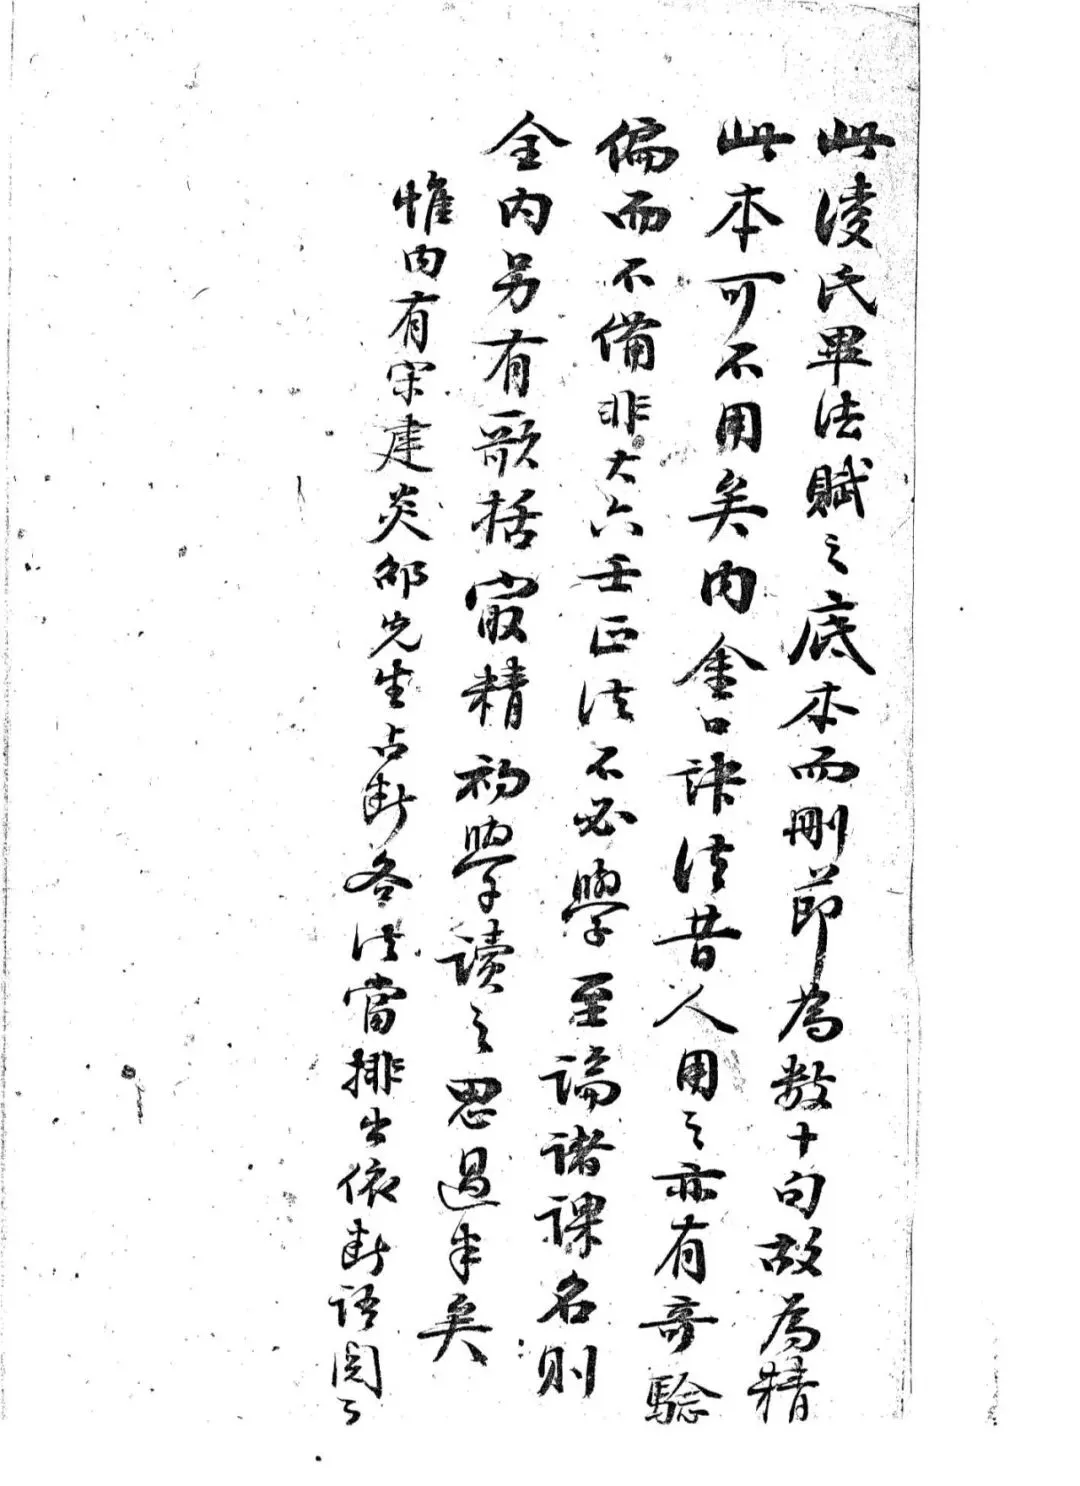 此淩氏畢法賦之底本而刪節為數十句故為精
此本可不用矣內金口訣法昔人用之亦有奇驗
偏而不備非大六壬正法不必學至論諸課名則
全內另有歌括最精初學讀之思過半矣
惟內有宋建炎邵先生占斷各法當排出依斷語閱之